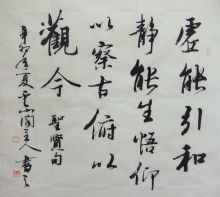 虚能引和
静能生悟仰
以察古俯以
观今 聖賢句
辛卯年夏 主人書